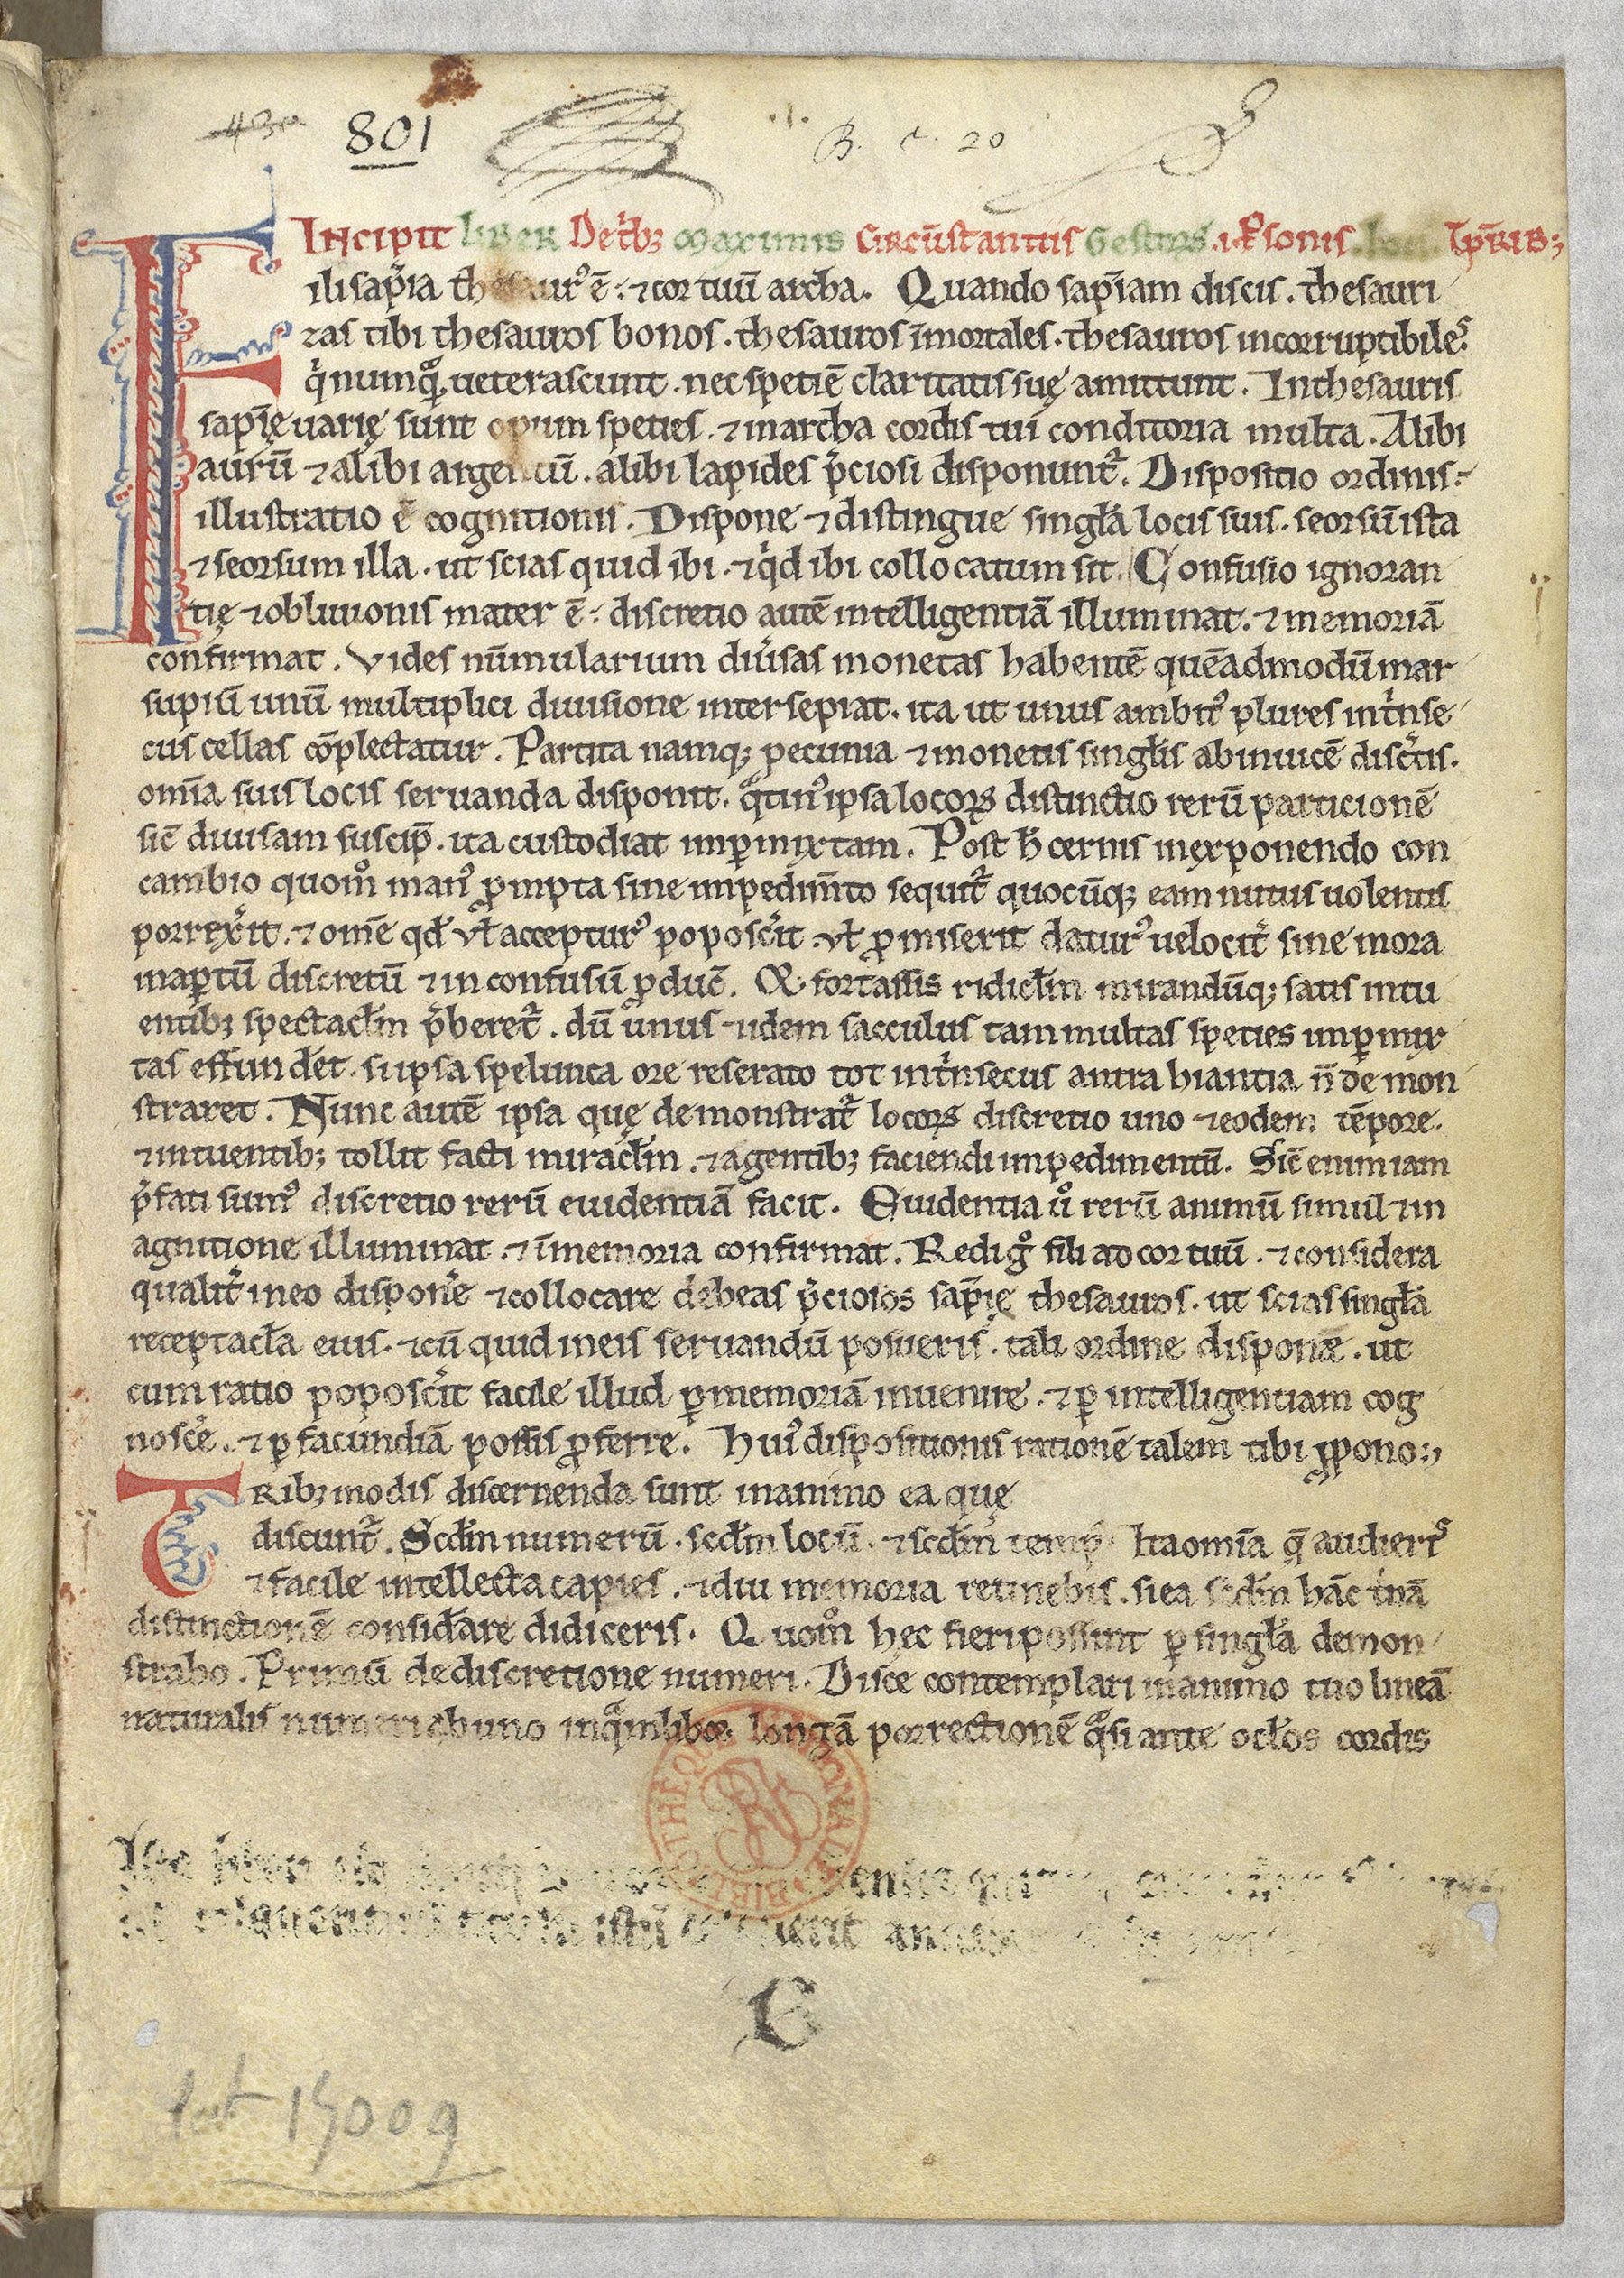 430 801 B. c. 20
Incipit liber De trib; maximis circūstantiis gestorꝝ .i. ꝑsonis. loc tp̄rib;
Fili sapīa thesaurꝰ ē. ⁊ cor tuū archa. Quando sapīam discis. thesauri
zas tibi thesauros bonos. thesauros īmortales. thesauros incorruptibiles.
qͥ numqͣ ueterascunt. nec spetiē claritatis suę amittunt. In thesauris
sapīę uarię sunt opum speties. ⁊ in archa cordis tui conditoria multa. Alibi
aurū ⁊ alibi argentū. alibi lapides p̄ciosi disponunt᷑. Dispositio ordinis.
illustratio ē cognitionis. Dispone ⁊ distingue singl̄a locis suis. seorsū ista
⁊ seorsum illa. ut scias quid ibi. ⁊ qͥd ibi collocatum sit. Confusio ignoran
tię ⁊ obliuionis mater ē. discretio autē intelligentiā illuminat. ⁊ memoriā
confirmat. Vides nūmularium diu͛sas monetas habentē quēadmodū mar
supiū unū multiplici diuisione intersepiat. ita ut unus ambitꝰ plures int͛nse
cus cellas cōplectatur. Partita namq; pecunia ⁊ monetis singl̄is abinuicē disc͛tis.
om̄ia suis locis seruanda disponit. qͣtinꝰ ipsa locorꝝ distinctio rerū particionē
sic̄ diuisam suscip̄. ita custodiat inꝑmixtam. Post h̄ cernis in exponendo con
cambio quom̊ manꝰ ꝓmpta sine impedim̄to sequit᷑ quocūq; eam nutus uolentis
porrex͛it. ⁊ om̄e qd̄ ul̄ accepturꝰ poposc͛it. ul̄ ꝓmiserit daturꝰ uelocit͛ sine mora
in aꝑtū discretū ⁊ inconfusū ꝓduc̄. Qd̄ fortassis ridicl̄m mirandūq; satis intu
entib; spectacl̄m p̄beret᷑. dū unus ⁊ idem sacculus tam multas speties inꝑmix
tas effund͛et. si ipsa spelunca ore reserato tot int͛nsecus antra hiantia n̄ demon
straret. Nunc autē ipsa quę demonstrat᷑ locorꝝ discretio uno ⁊ eodem tēpore.
⁊ intuentib; tollit facti miracl̄m. ⁊ agentib; faciendi impedimentū. Sic̄ enim iam
p̄fati sumꝰ discretio rerū euidentiā facit. Euidentia ů rerū animū simul ⁊ in
agnitione illuminat. ⁊ ī memoria confirmat. Redi g̊ fili ad cor tuū. ⁊ considera
qualit͛ in eo dispon͛e ⁊ collocare debeas p̄ciosos sapīę thesauros. ut scias singl̄a
receptacl̄a eius. ⁊ cū quid in eis seruandū posueris. tali ordine disponæ. ut
cum ratio poposc͛it facile illud ꝑ memoriā inuenire. ⁊ ꝑ intelligentiam cog
nosc͛e. ⁊ ꝑ facundiā possis ꝓferre. Huiꝰ dispositionis rationē talem tibi ꝓpono.
Trib; modis discernenda sunt in animo ea quę
discunt᷑. Scd̄m numerū. scd̄m locū. ⁊ scd̄m temp̄. Ita om̄ia q̄ audieris
⁊ facile intellecta capies. ⁊ diu memoria retinebis. si ea scd̄m hāc t͛nā
distinctionē consid͛are didiceris. Quom̊ hęc fieri possint ꝑ singl̄a demon
strabo. Primū de discretione numeri. Disce contemplari in animo tuo lineā
naturalis numeri ab uno in qͣmlibæ longā porrectionē qͣsi ante ocl̄os cordis
BIBLIOTHÈQUE NATIONALE
Iste liber
istū
lat 15009